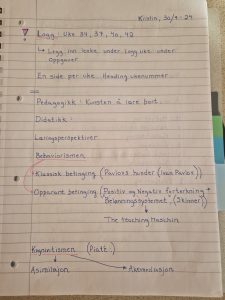 Kristin, 30/9 - 24
Logg: Uke 34, 37, 40, 42
↳ Logg inn leake under Logg uke under
Oppgaver
En side per uke. Heading ukenummer.
Pedagogikk: Kunsten å lære bort.
Didatikk:
Læringsperspektiver
Behaviorismen
Klassisk betinging (Pavlovs hunder (Ivan Pavlov))
Opparant betinging (Positiv og Negativ forterkning +
Belønningssystemet, (Skinner)
The teaching Maschin
Kognitismen (Piatt.)
Asimilasjon → Akkomodasjon